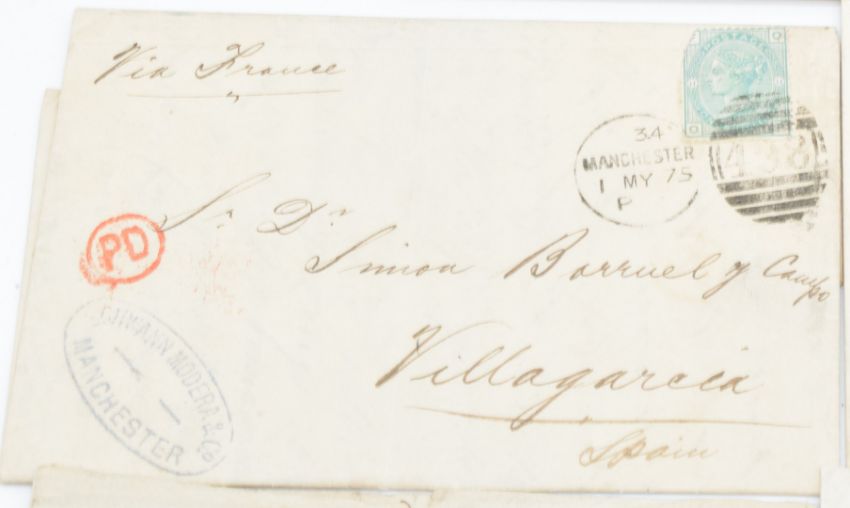 Via France
POSTAGE
Q
O
34
MANCHESTER
1 MY 75
P
498
PD
Sr. Dr.
Simon Borruel y Campo
Villagarcia
Spain
MODERA & Co
MANCHESTER